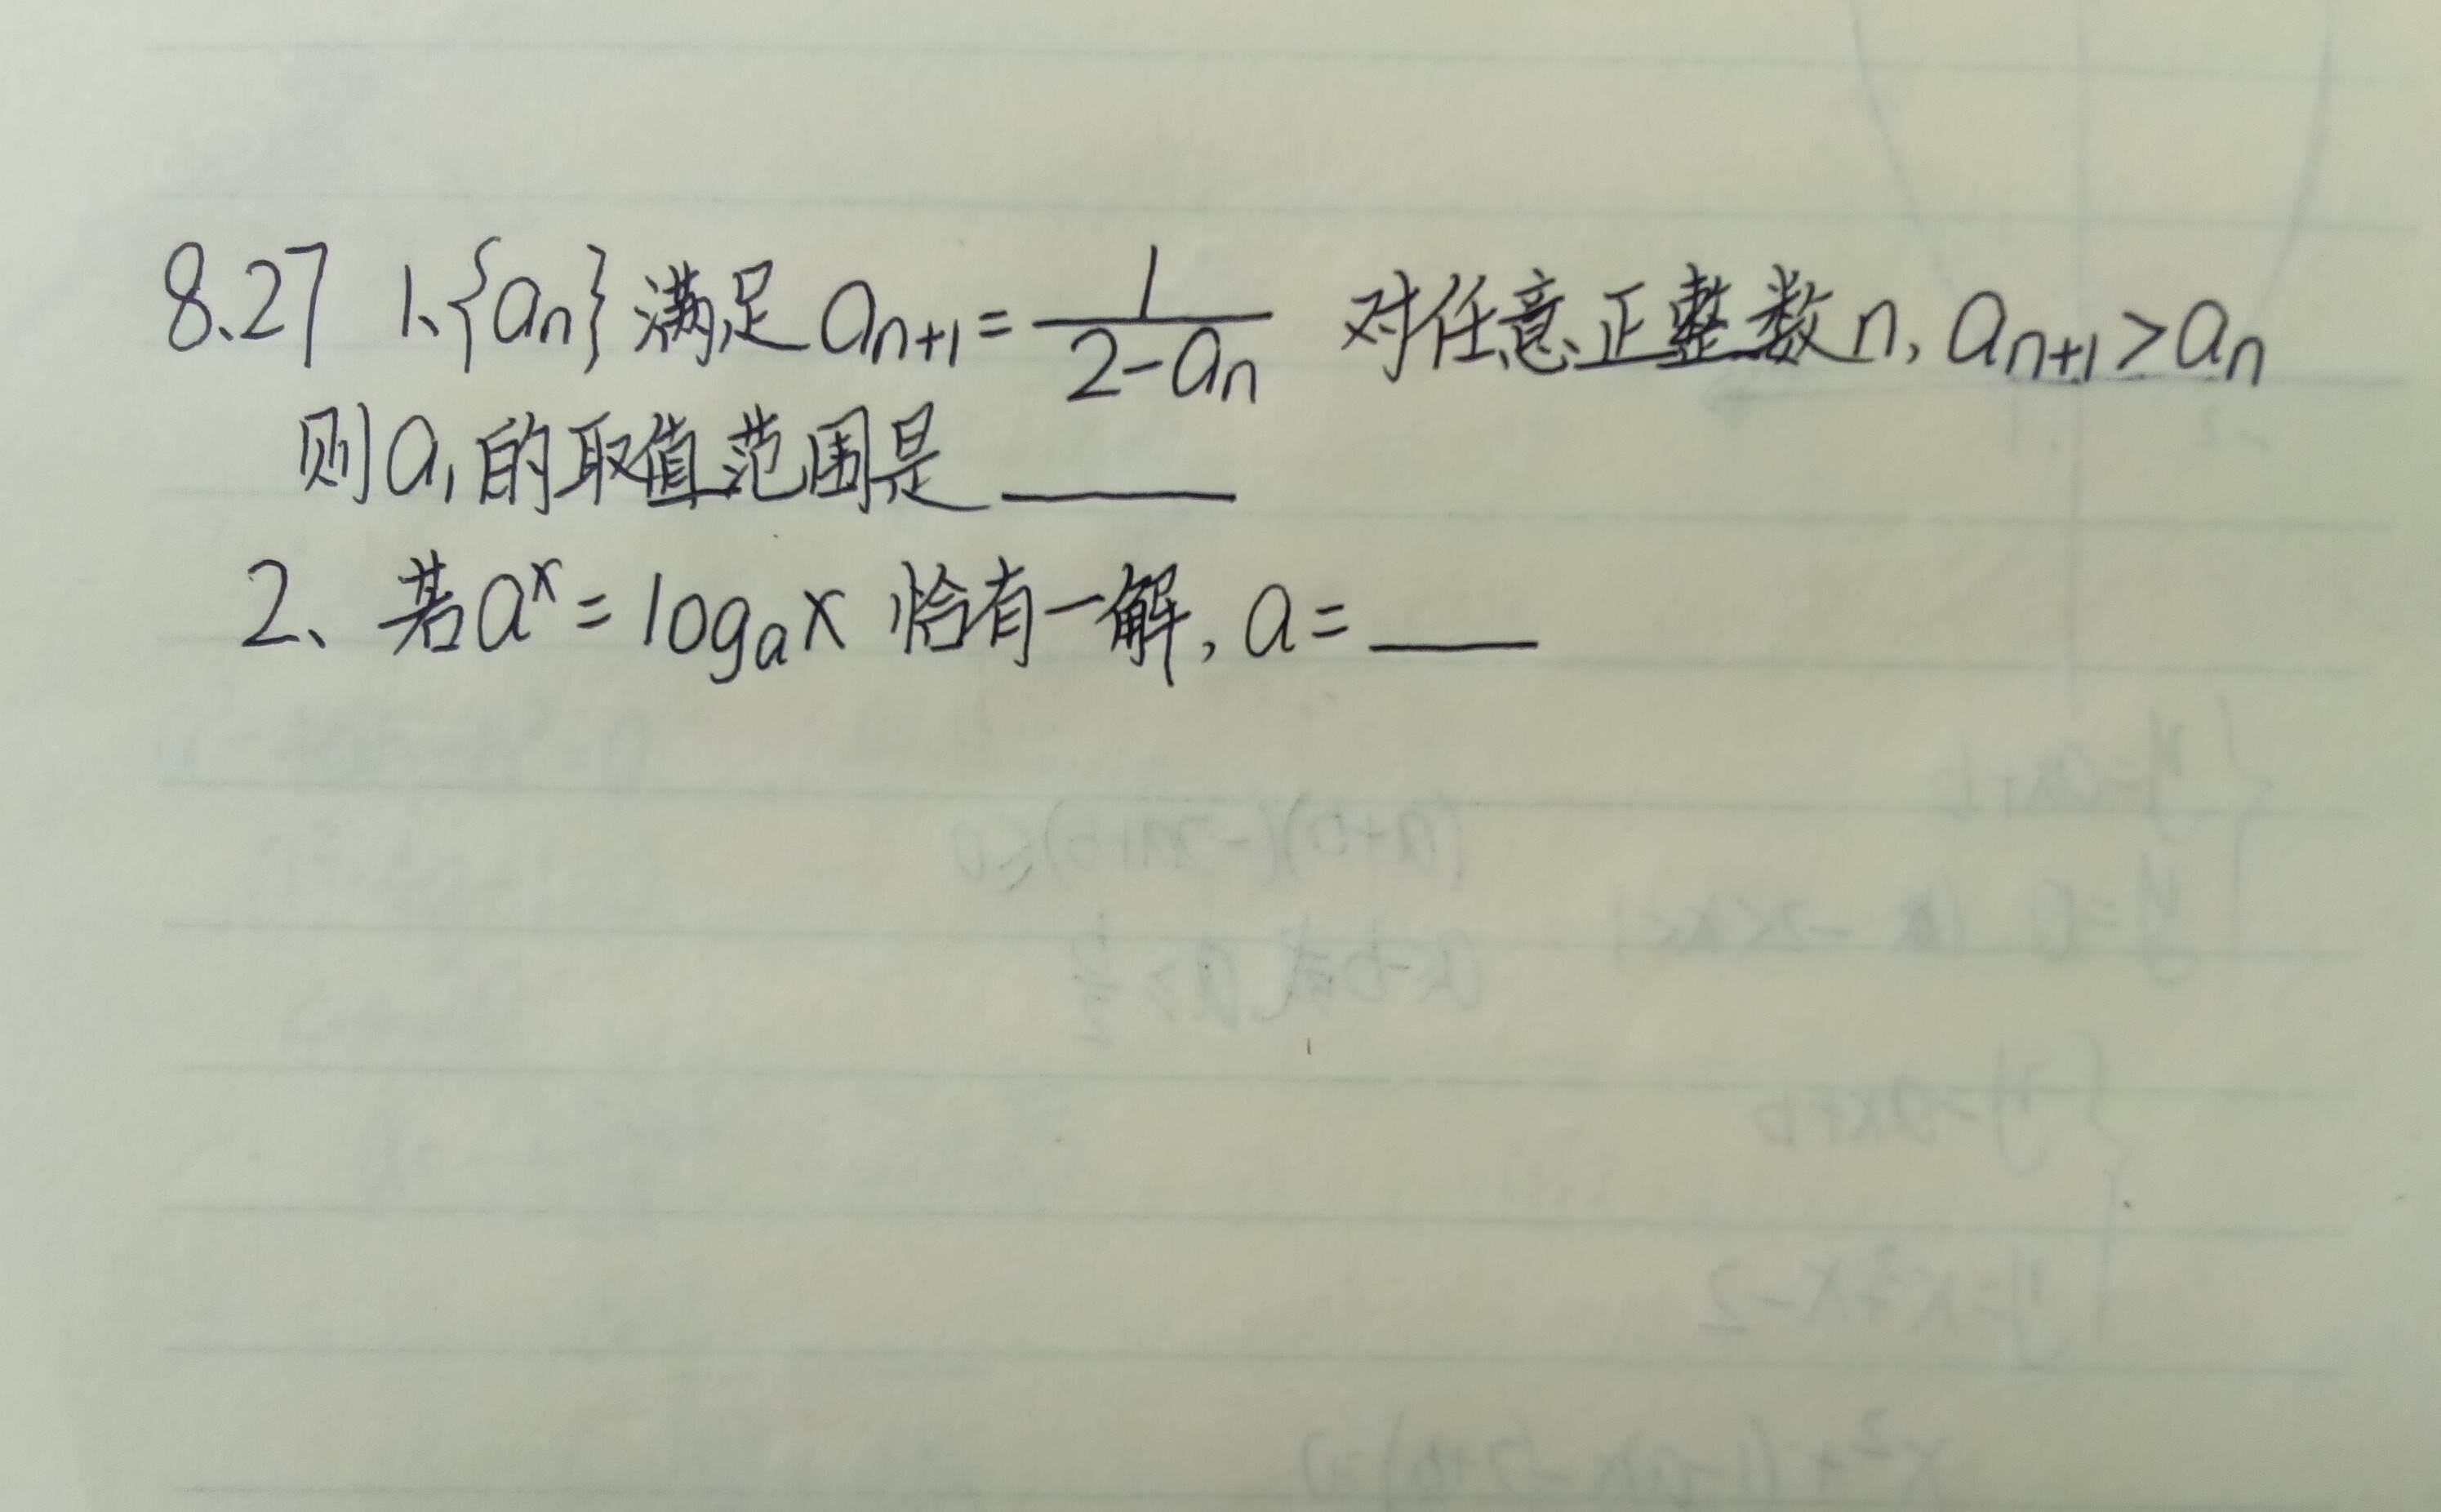 8.27 1、{aₙ}满足 aₙ₊₁=1/(2-aₙ) 对任意正整数n, aₙ₊₁>aₙ
则a₁的取值范围是____
2、若aˣ=logₐx 恰有一解, a=____